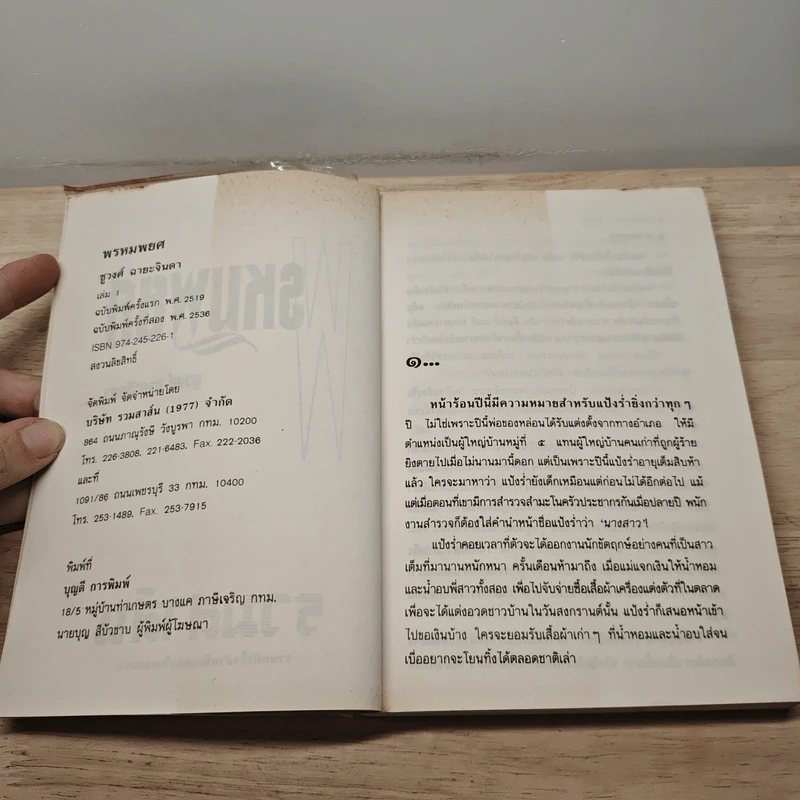 พรหมพยศ
ชูวงศ์ ฉายะจินดา
เล่ม 1
ฉบับพิมพ์ครั้งแรก พ.ศ. 2519
ฉบับพิมพ์ครั้งที่สอง พ.ศ. 2536
ISBN 974-245-226-1
สงวนลิขสิทธิ์
จัดพิมพ์ จัดจำหน่ายโดย
บริษัท รวมสาส์น (1977) จำกัด
864 ถนนภาณุรังษี วังบูรพา กทม. 10200
โทร. 226-3808, 221-6483, Fax. 222-2036
และที่
1091/86 ถนนเพชรบุรี 33 กทม. 10400
โทร. 253-1489, Fax. 253-7915
พิมพ์ที่
บุญดี การพิมพ์
18/5 หมู่บ้านท่าเกษตร บางแค ภาษีเจริญ กทม.
นายบุญ สีบัวขาบ ผู้พิมพ์ผู้โฆษณา
๑...
หน้าร้อนปีนี้มีความหมายสำหรับแป้งร่ำยิ่งกว่าทุก ๆ
ปี ไม่ใช่เพราะปีนี้พ่อของหล่อนได้รับแต่งตั้งจากทางอำเภอ ให้มี
ตำแหน่งเป็นผู้ใหญ่บ้านหมู่ที่ ๕ แทนผู้ใหญ่บ้านคนเก่าที่ถูกผู้ร้าย
ยิงตายไปเมื่อไม่นานมานี้ดอก แต่เป็นเพราะปีนี้แป้งร่ำอายุเต็มสิบห้า
แล้ว ใครจะมาหาว่า แป้งร่ำยังเด็กเหมือนแต่ก่อนไม่ได้อีกต่อไป แม้
แต่เมื่อตอนที่เขามีการสำรวจสำมะโนครัวประชากรกันเมื่อปลายปี พนัก
งานสำรวจก็ต้องใส่คำนำหน้าชื่อแป้งร่ำว่า 'นางสาว'!
แป้งร่ำคอยเวลาที่ตัวจะได้ออกงานนักขัตฤกษ์อย่างคนที่เป็นสาว
เต็มที่มานานหนักหนา ครั้นเดือนห้ามาถึง เมื่อแม่แจกเงินให้น้ำหอม
และน้ำอบพี่สาวทั้งสอง เพื่อไปจับจ่ายซื้อเสื้อผ้าเครื่องแต่งตัวที่ในตลาด
เพื่อจะได้แต่งอวดชาวบ้านในวันสงกรานต์นั้น แป้งร่ำก็เสนอหน้าเข้า
ไปขอเงินบ้าง ใครจะยอมรับเสื้อผ้าเก่า ๆ ที่น้ำหอมและน้ำอบใส่จน
เบื่ออยากจะโยนทิ้งได้ตลอดชาติเล่า